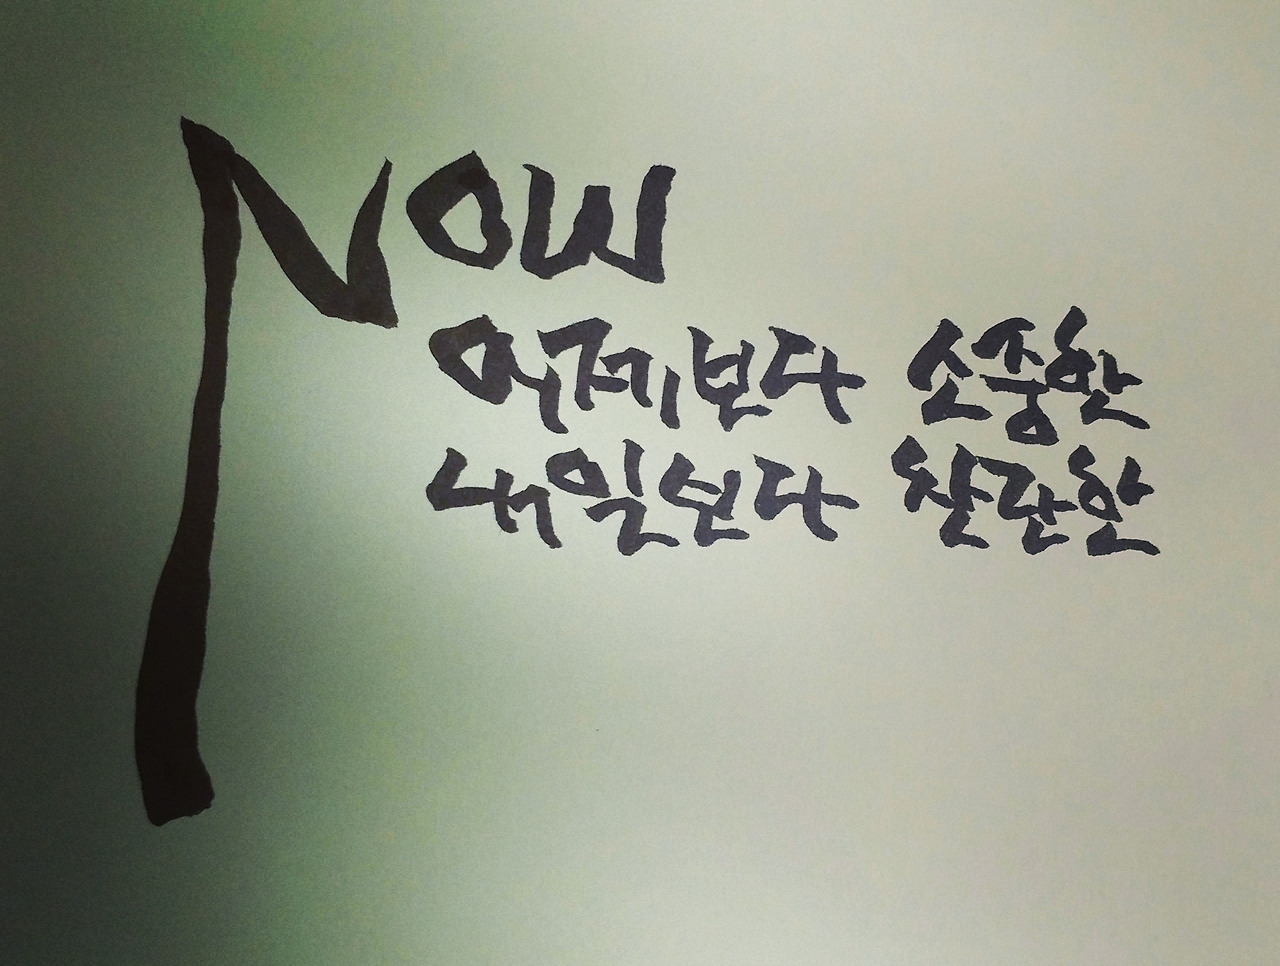 NOW
어제보다 소중한
내일보다 찬란한